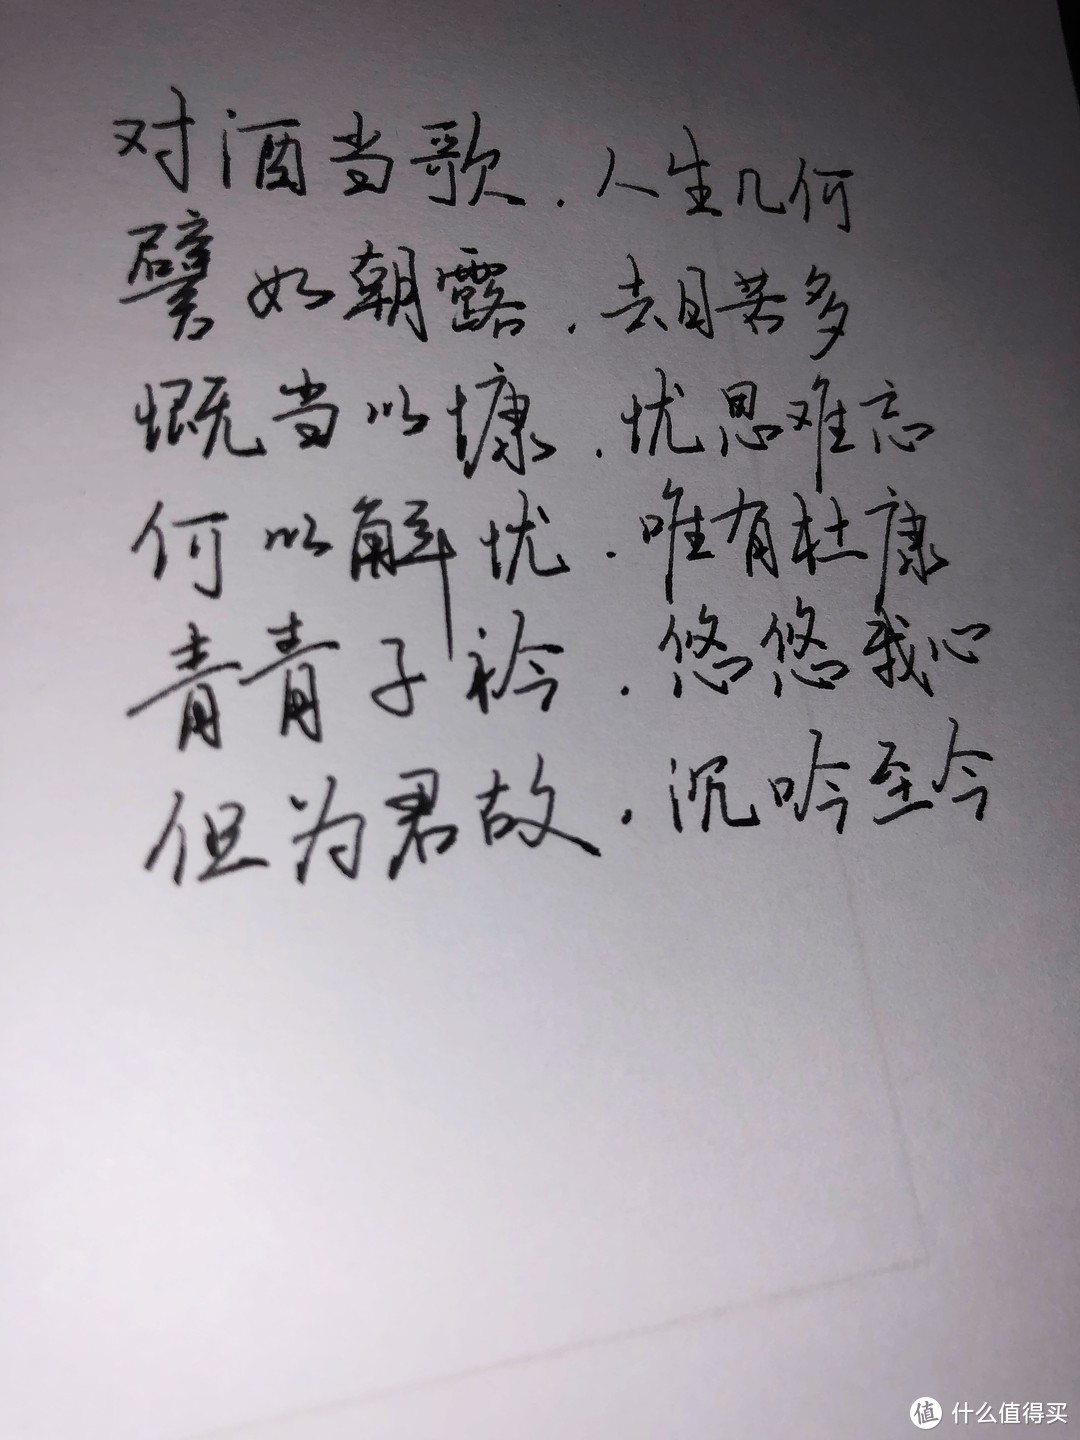 对酒当歌.人生几何
譬如朝露.去日苦多
慨当以慷.忧思难忘
何以解忧.唯有杜康
青青子衿.悠悠我心
但为君故.沉吟至今
值 什么值得买